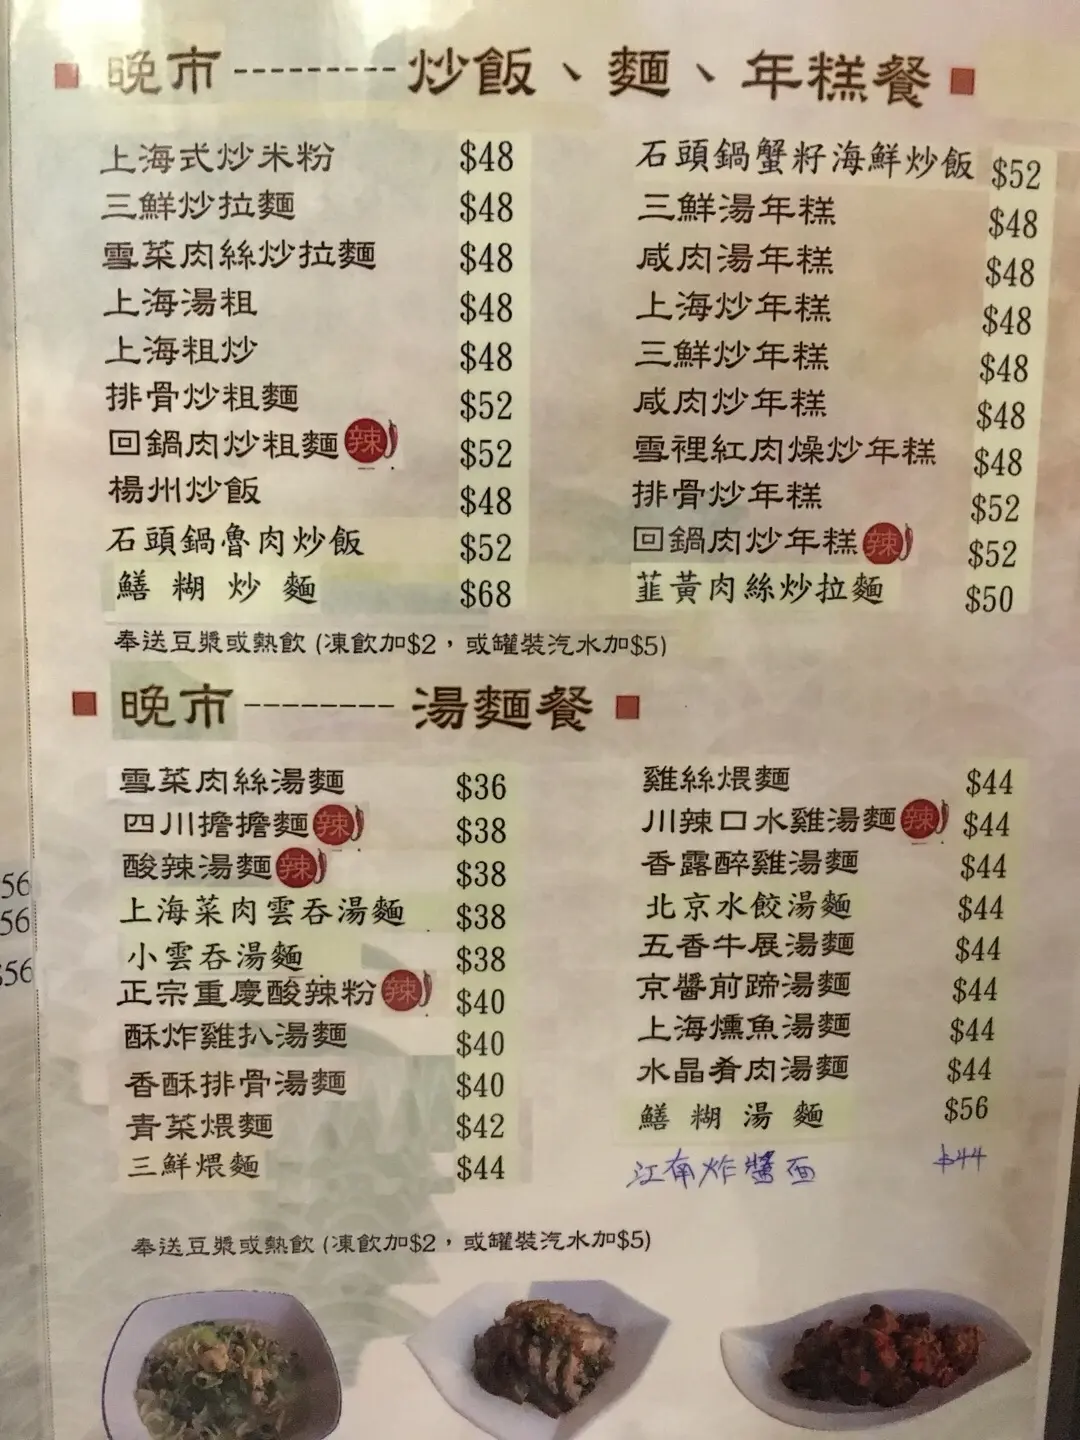 晚市---------炒飯、麵、年糕餐
上海式炒米粉 $48
三鮮炒拉麵 $48
雪菜肉絲炒拉麵 $48
上海湯粗 $48
上海粗炒 $48
排骨炒粗麵 $52
回鍋肉炒粗麵 辣 $52
楊州炒飯 $48
石頭鍋魯肉炒飯 $52
鱔糊炒麵 $68
石頭鍋蟹籽海鮮炒飯 $52
三鮮湯年糕 $48
咸肉湯年糕 $48
上海炒年糕 $48
三鮮炒年糕 $48
咸肉炒年糕 $48
雪裡紅肉燥炒年糕 $48
排骨炒年糕 $52
回鍋肉炒年糕 辣 $52
韮黃肉絲炒拉麵 $50
奉送豆漿或熱飲 (凍飲加$2，或罐裝汽水加$5)
晚市--------湯麵餐
雪菜肉絲湯麵 $36
四川擔擔麵 辣 $38
酸辣湯麵 辣 $38
上海菜肉雲吞湯麵 $38
小雲吞湯麵 $38
正宗重慶酸辣粉 辣 $40
酥炸雞扒湯麵 $40
香酥排骨湯麵 $40
青菜煨麵 $42
三鮮煨麵 $44
雞絲煨麵 $44
川辣口水雞湯麵 辣 $44
香露醉雞湯麵 $44
北京水餃湯麵 $44
五香牛展湯麵 $44
京醬前蹄湯麵 $44
上海燻魚湯麵 $44
水晶肴肉湯麵 $44
鱔糊湯麵 $56
江南炸醬面 $44
奉送豆漿或熱飲 (凍飲加$2，或罐裝汽水加$5)
56
56
$56